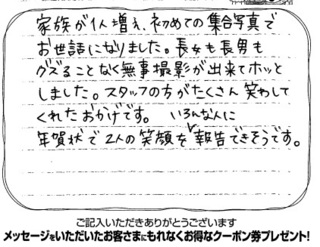 家族が1人増え、初めての集合写真で
お世話になりました。長女も長男も
グズることなく無事撮影が出来てホッと
しました。スタッフの方がたくさん笑わして
くれたおかげです。 いろんな人に
年賀状で2人の笑顔を報告できそうです。
ご記入いただきありがとうございます
メッセージをいただいたお客さまにもれなくお得なクーポン券プレゼント!